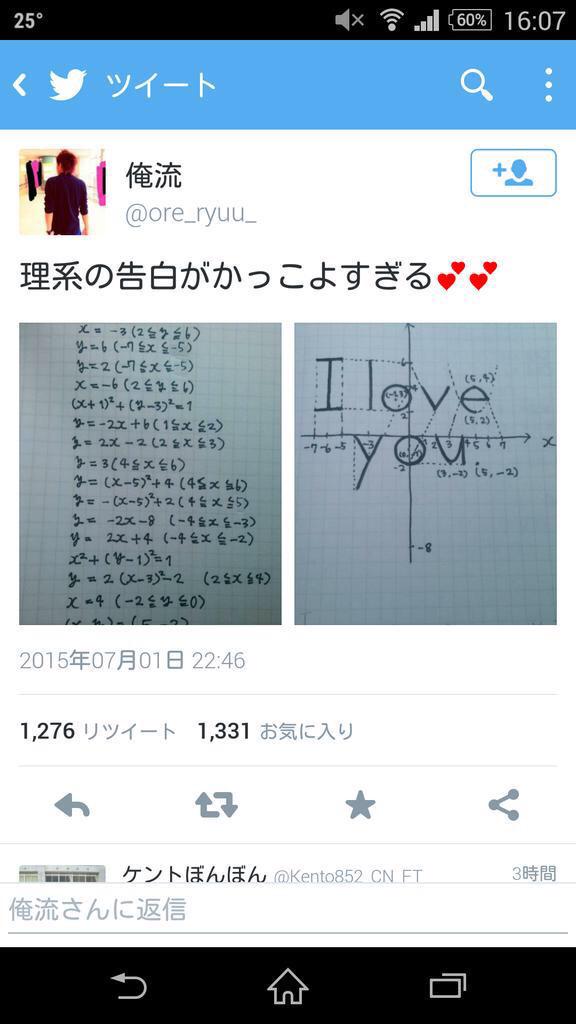 25° 60% 16:07
ツイート
俺流
@ore_ryuu_
理系の告白がかっこよすぎる💕💕
x = -3 (2≦y≦6)
y=6 (-7≦x≦-5)
y=2 (-7≦x≦-5)
x=-6 (2≦y≦6)
(x+1)²+(y-3)²=1
y=-2x+6 (1≦x≦2)
y=2x-2 (2≦x≦3)
y=3 (4≦x≦6)
y=(x-5)²+4 (4≦x≦6)
y=-(x-5)²+2 (4≦x≦5)
y= -2x-8 (-4≦x≦-3)
y= 2x+4 (-4≦x≦-2)
x²+(y-1)²=1
y=2(x-3)²-2 (2≦x≦4)
x=4 (-2≦y≦0)
I love
(5,4)
(5,2)
-7 -6 -5 -3 2 3 4 5 6 7 x
you
-2 (3,-2) (5,-2)
-8
2015年07月01日 22:46
1,276 リツイート 1,331 お気に入り
ケントぼんぼん @Kento852_CN_FT 3時間
俺流さんに返信